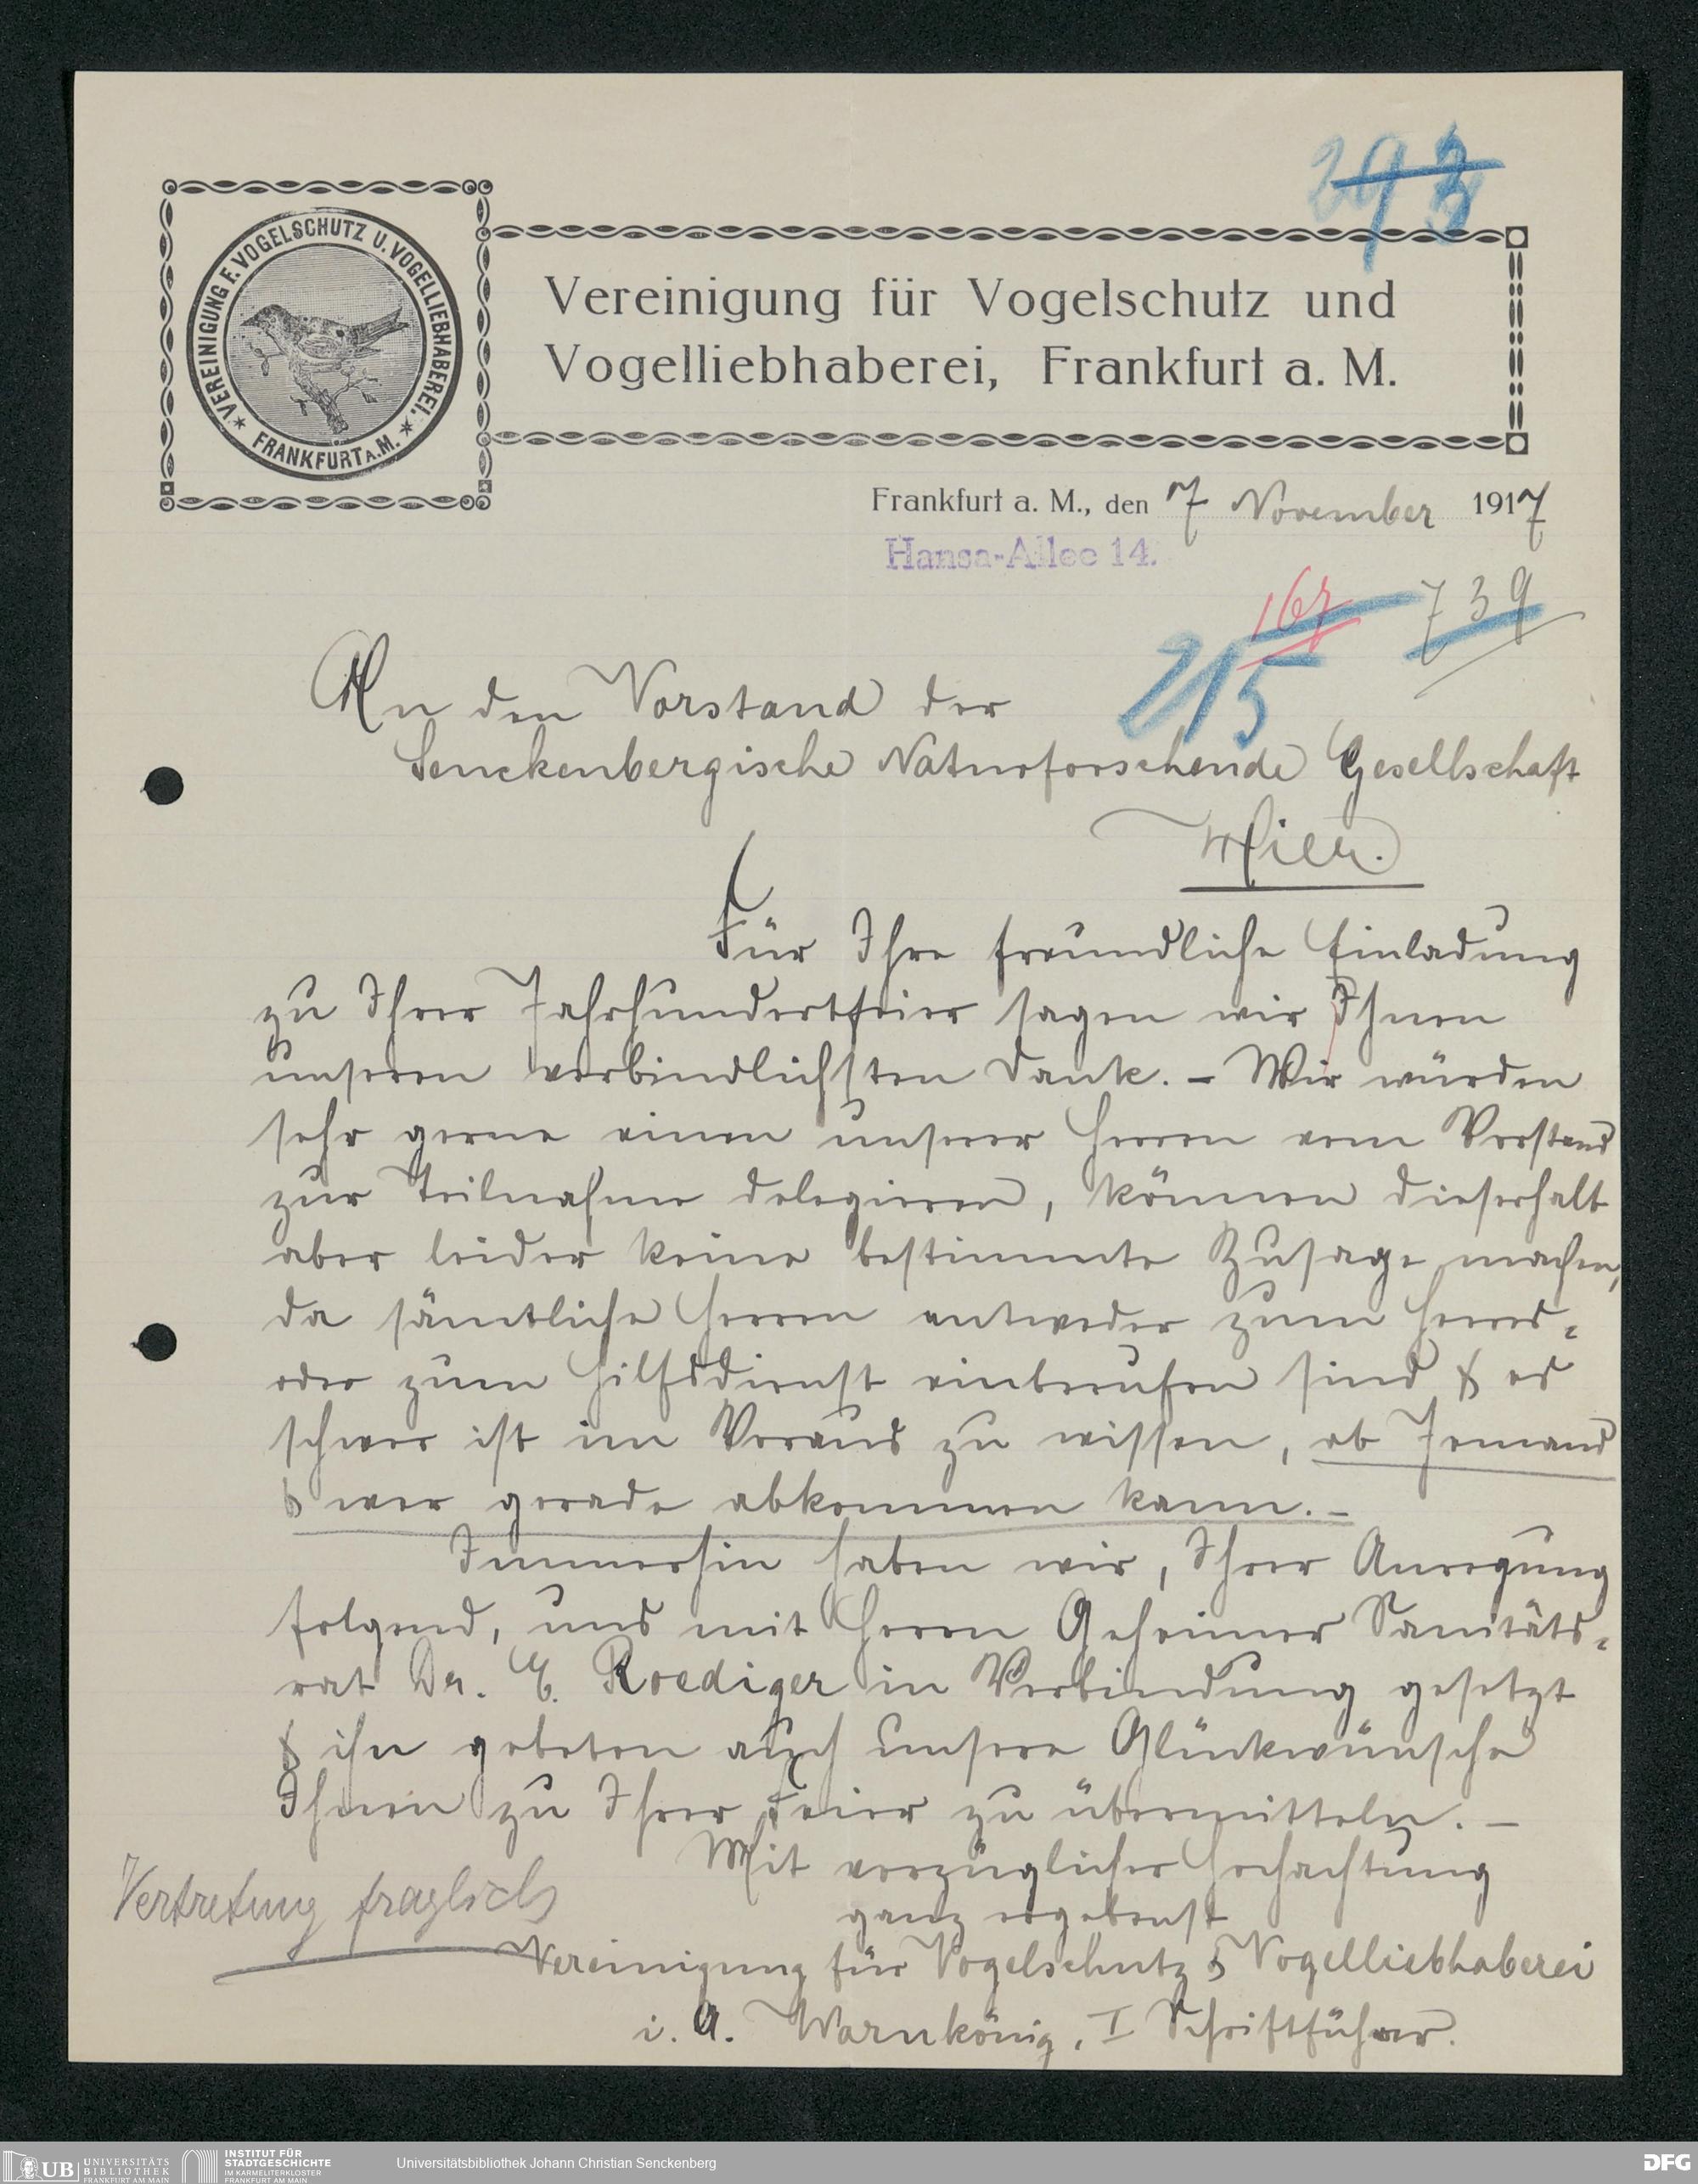 293
VEREINIGUNG F. VOGELSCHUTZ U. VOGELLIEBHABEREI.
* FRANKFURT A. M. *
Vereinigung für Vogelschutz und
Vogelliebhaberei, Frankfurt a. M.
Frankfurt a. M., den 7 November 1917
Hansa-Allee 14.
167 739
215
An den Vorstand der
Senckenbergische Naturforschende Gesellschaft
Hier.
Für Ihre freundliche Einladung
zu Ihrer Jahrhundertfeier sagen wir Ihnen
unseren verbindlichsten Dank. – Wir würden
sehr gerne einen unserer Herren vom Vorstand
zur Teilnahme delegieren, können dieserhalb
aber leider keine bestimmte Zusage machen,
da sämtliche Herren entweder zum Heeres=
oder zum Hilfsdienst einberufen sind & es
schwer ist im Voraus zu wissen, ob Jemand
& wer gerade abkommen kann. –
Immerhin haben wir, Ihrer Anregung
folgend, uns mit Herrn Geheimer Sanitäts=
rat Dr. E. Roediger in Verbindung gesetzt
& ihn gebeten auch unsere Glückwünsche
Ihnen zu Ihrer Feier zu übermitteln. –
Mit vorzüglicher Hochachtung
Vertretung fraglich
ganz ergebenst
Vereinigung für Vogelschutz & Vogelliebhaberei
i. A. Warnkönig, I Schriftführer.
UB UNIVERSITÄTS
BIBLIOTHEK
FRANKFURT AM MAIN
INSTITUT FÜR
STADTGESCHICHTE
IM KARMELITERKLOSTER
FRANKFURT AM MAIN
Universitätsbibliothek Johann Christian Senckenberg
DFG